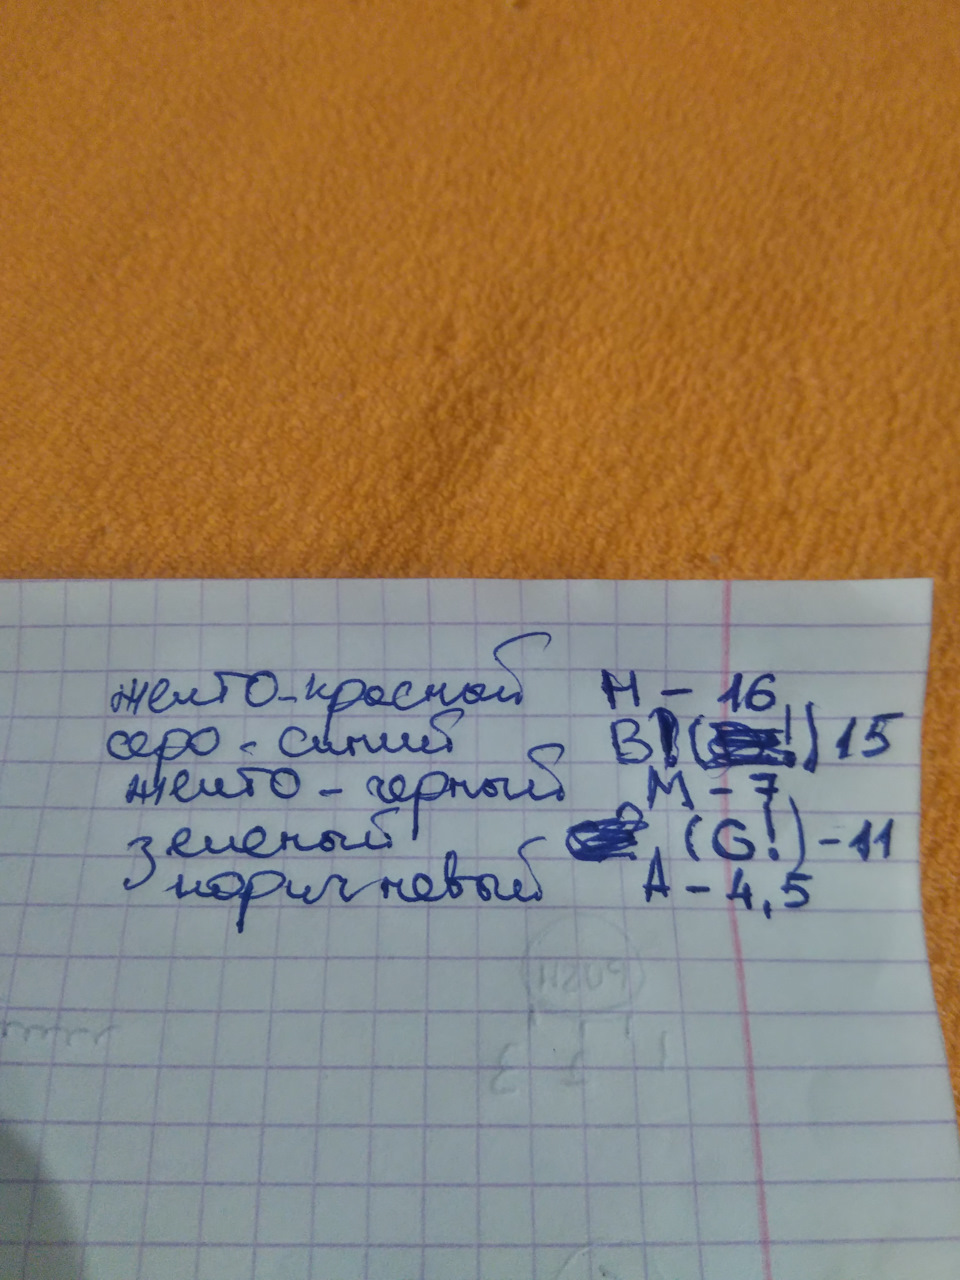 желто-красный H - 16
серо-синий B ( !) 15
желто-черный M - 7
зеленый (G!) - 11
коричневый A - 4,5